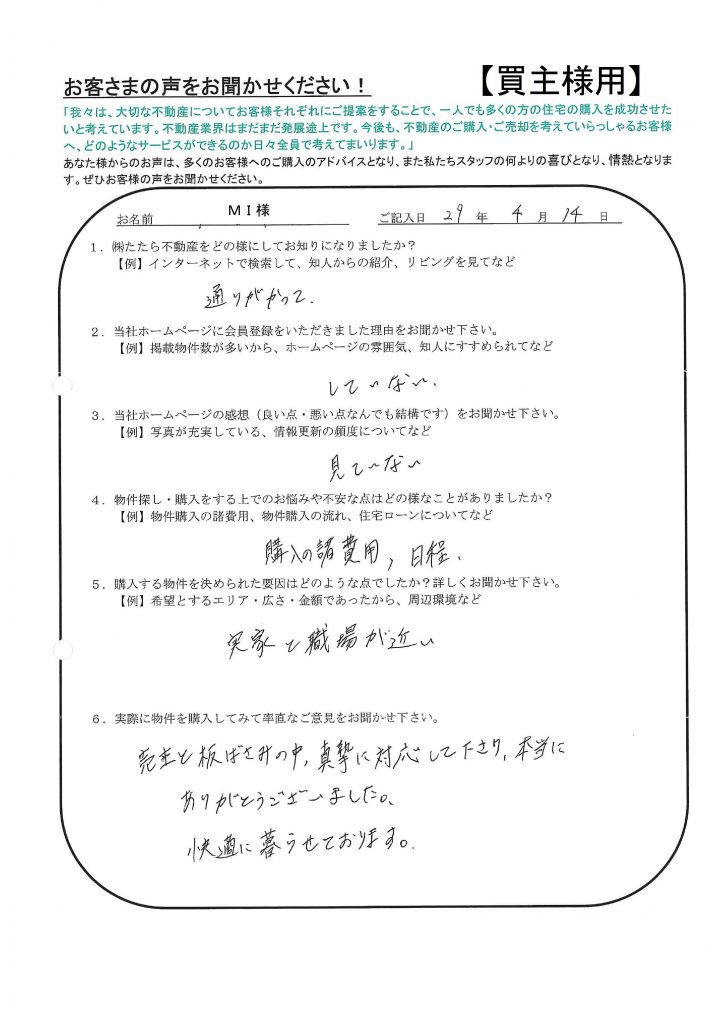 お客さまの声をお聞かせください！ 【買主様用】
「我々は、大切な不動産についてお客様それぞれにご提案をすることで、一人でも多くの方の住宅の購入を成功させた
いと考えています。不動産業界はまだまだ発展途上です。今後も、不動産のご購入・ご売却を考えていらっしゃるお客様
へ、どのようなサービスができるのか日々全員で考えてまいります。」
あなた様からのお声は、多くのお客様へのご購入のアドバイスとなり、また私たちスタッフの何よりの喜びとなり、情熱となりま
す。ぜひお客様の声をお聞かせください。
お名前 ＭＩ様 ご記入日 29 年 4 月 14 日
１．㈱たたら不動産をどの様にしてお知りになりましたか？
【例】インターネットで検索して、知人からの紹介、リビングを見てなど
通りがかって．
２．当社ホームページに会員登録をいただきました理由をお聞かせ下さい。
【例】掲載物件数が多いから、ホームページの雰囲気、知人にすすめられてなど
していない．
３．当社ホームページの感想（良い点・悪い点なんでも結構です）をお聞かせ下さい。
【例】写真が充実している、情報更新の頻度についてなど
見ていない
４．物件探し・購入をする上でのお悩みや不安な点はどの様なことがありましたか？
【例】物件購入の諸費用、物件購入の流れ、住宅ローンについてなど
購入の諸費用，日程．
５．購入する物件を決められた要因はどのような点でしたか？詳しくお聞かせ下さい。
【例】希望とするエリア・広さ・金額であったから、周辺環境など
実家と職場が近い
６．実際に物件を購入してみて率直なご意見をお聞かせ下さい。
売主と板ばさみの中，真摯に対応して下さり，本当に
ありがとうございました。
快適に暮らせております。